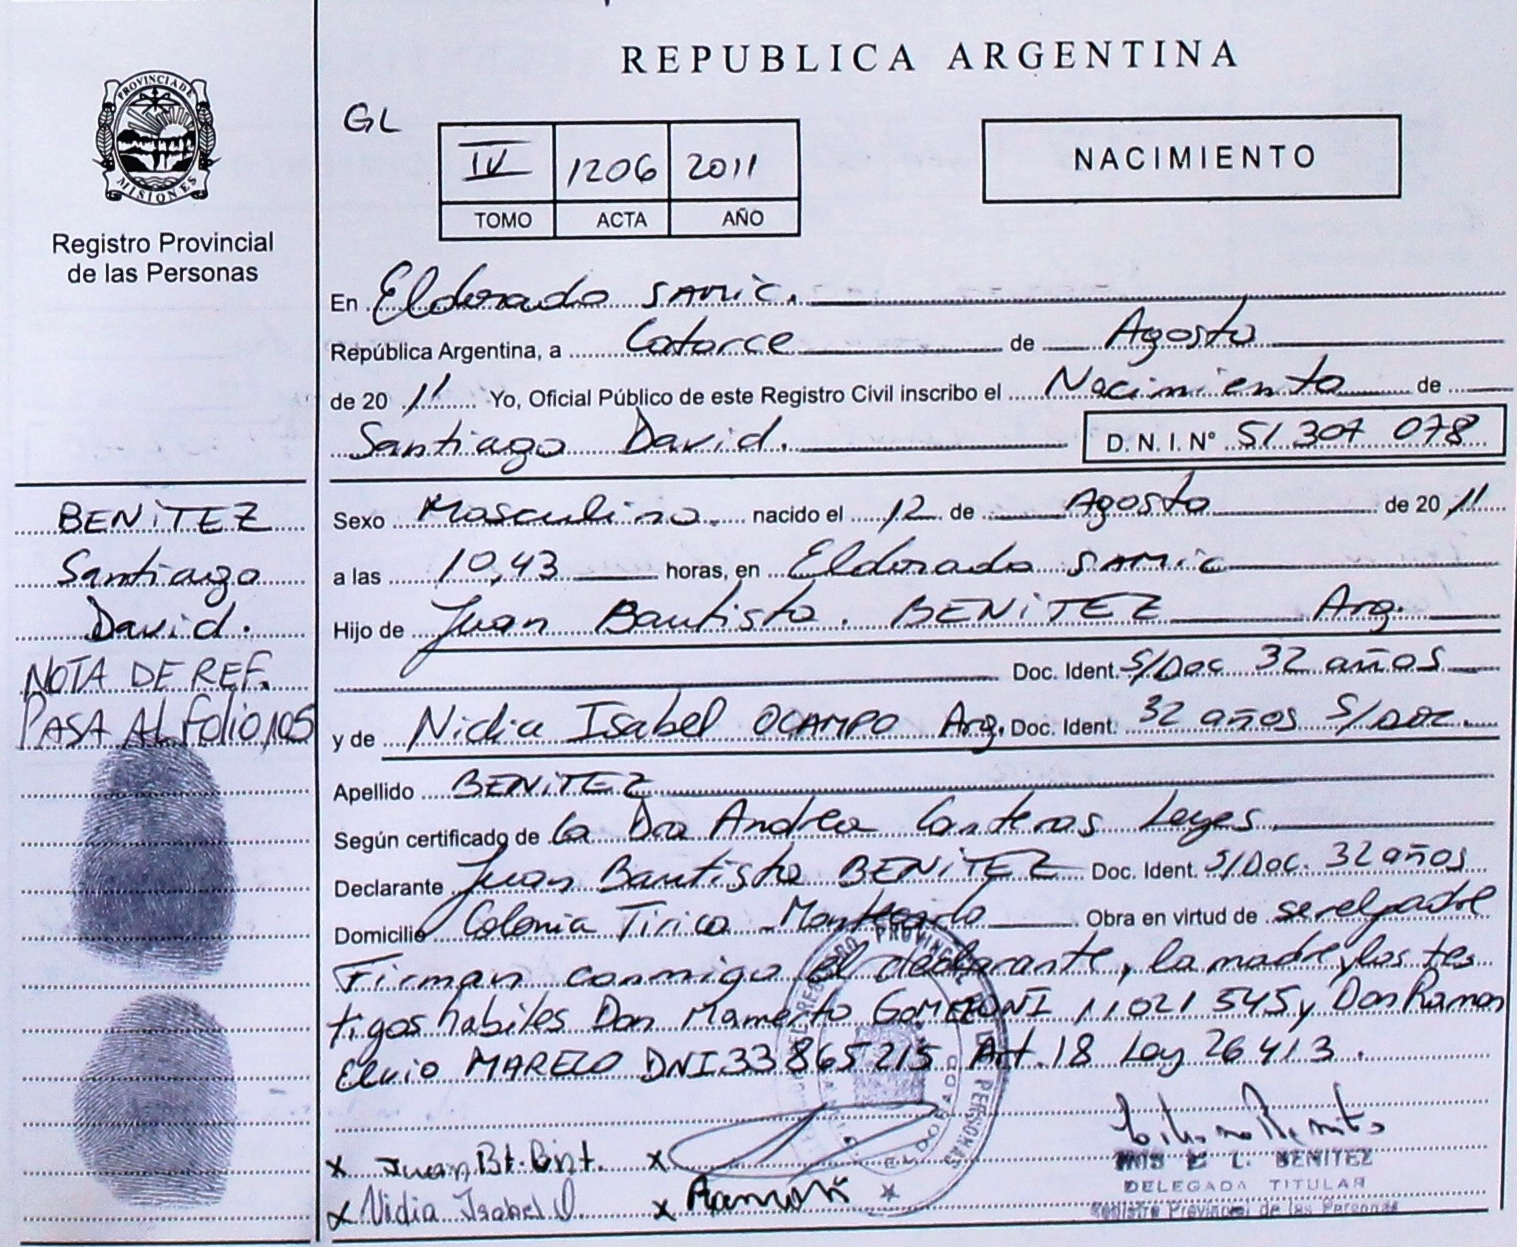 REPUBLICA ARGENTINA
PROVINCIA DE
MISIONES
Registro Provincial
de las Personas
GL
IV 1206 2011
TOMO ACTA AÑO
NACIMIENTO
En Eldorado SAMIC.
República Argentina, a Catorce de Agosto
de 2011 Yo, Oficial Público de este Registro Civil inscribo el Nacimiento de
Santiago David. D. N. I. N° 51 307 078
BENITEZ
Santiago
David.
NOTA DE REF.
PASA AL folio 105
Sexo Masculino. nacido el 12 de Agosto de 2011
a las 10,43 horas, en Eldorado SAMIC
Hijo de Juan Bautista. BENITEZ Arg.
Doc. Ident. S/Doc 32 años
y de Nidia Isabel OCAMPO Arg. Doc. Ident. 32 años S/Doc.
Apellido BENITEZ
Según certificado de la Dra Andrea Canteros Leyes
Declarante Juan Bautista BENITEZ Doc. Ident. S/Doc. 32 años
Domicilio Colonia Tirica - Montecarlo Obra en virtud de ser el padre
Firman conmigo el declarante, la madre y los tes
tigos habiles Don Mamerto GOMEZ DNI 11021545 y Don Ramon
Elvio MARELO DNI 33 865 215 Art. 18 Ley 26 413.
REGISTRO PROVINCIAL DE LAS PERSONAS
ELDORADO
x Juan Bt. Bnt. x
x Nidia Isabel O. x Ramon
L. BENITEZ
DELEGADA TITULAR
Registro Provincial de las Personas